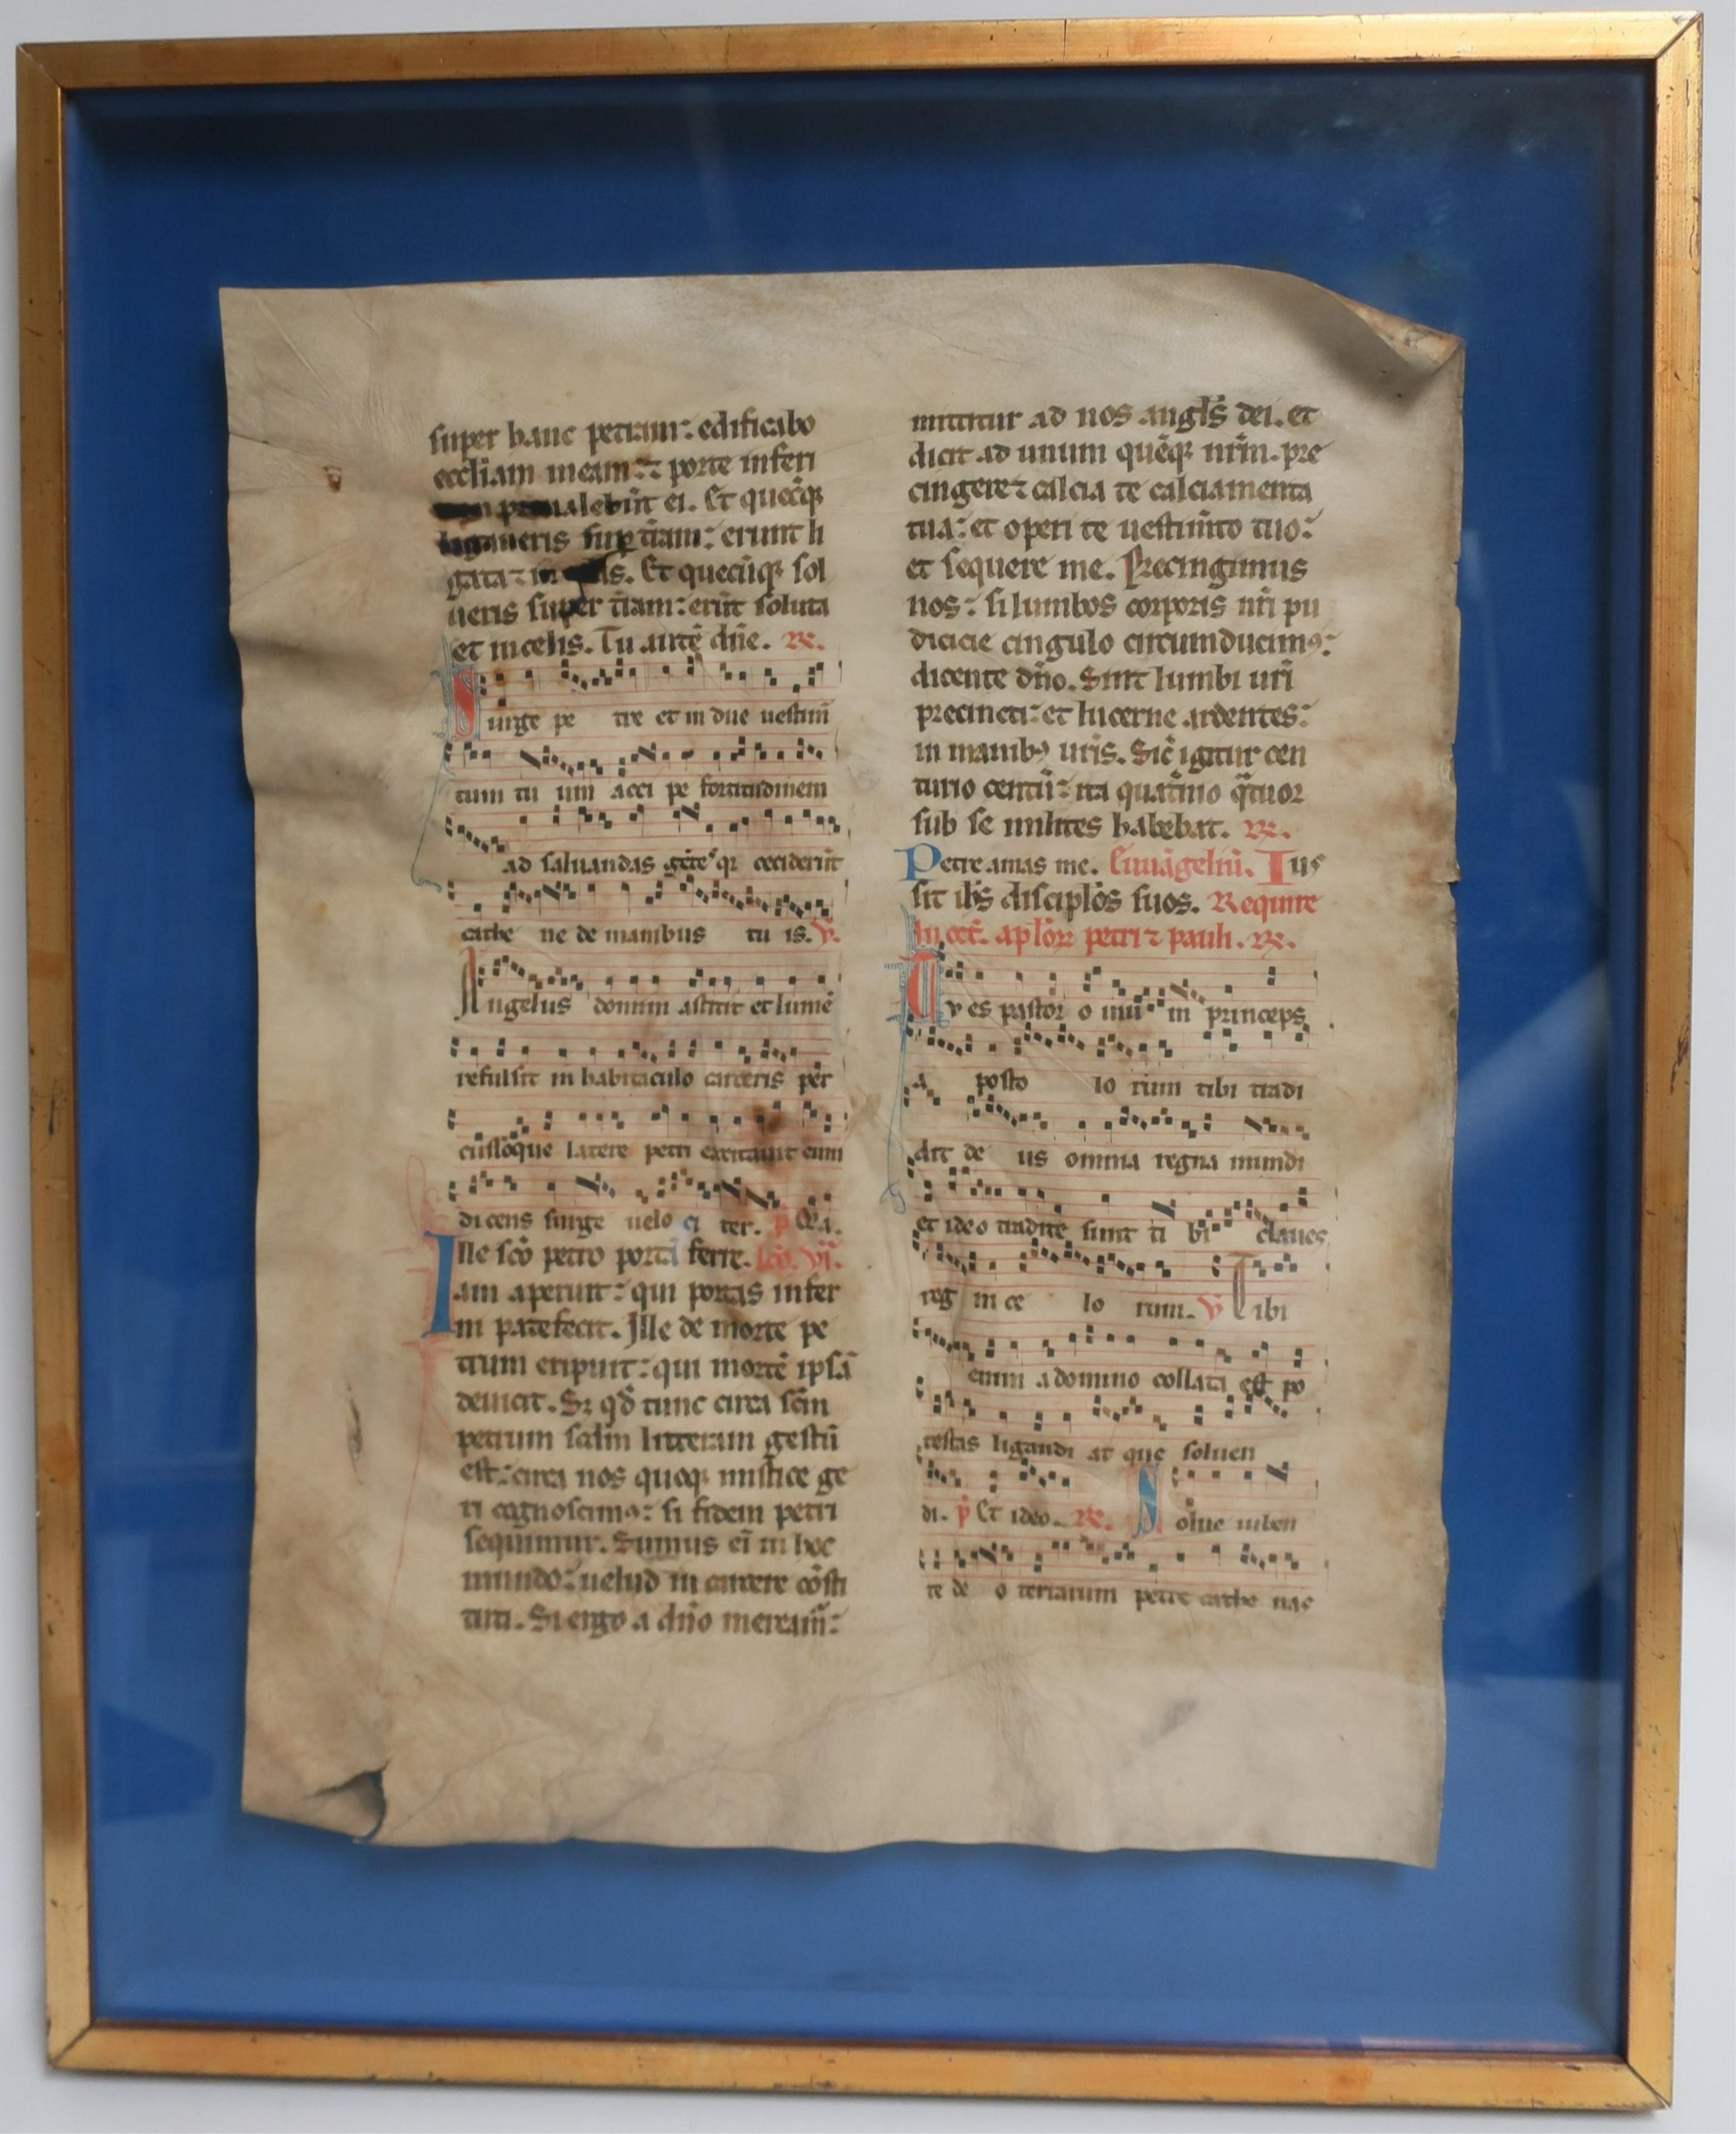 super hanc petram: edificabo
eccliam meam: ⁊ porte inferi
ualebūt ei. Et quecūqꝫ
ueris suꝑ t̄ram: erunt li
gata ⁊ in Et quecūqꝫ sol
ueris super t̄ram: erūt soluta
et in celis. Tu autē dn̄e. R̄.
Surge pe tre et in due uestim̄
tum tu um acci pe fortitudinem
ad saluandas gētes qꝛ ceciderūt
cathe ne de manibus tu is. V.
Angelus domini astitit et lumē
refulsit in habitaculo carceris per
cussoque latere petri excitauit eum
dicens surge uelo ci ter. p̄
Ille sc̄o petro portā ferre. lc̄o. vi.
am aperuit: qui portas infer
ni patefecit. Ille de morte pe
trum eripuit: qui mortē ipsā
deuicit. Sꝫ qd̄ tunc circa sc̄m
petrum salt̄m litteram gestū
est: circa nos quoqꝫ mistice ge
ri cognoscimꝰ: si fidem petri
sequimur. Sumus ei̅ in hoc
mundo: uelud in carcere cōsti
tuti. Si ergo a dn̄o meream̄:
mittitur ad nos angl̄s dei. et
dicit ad unum quēqꝫ nr̄m. pre
cingere ⁊ calcia te calciamenta
tua: et operi te uestim̄to tuo:
et sequere me. Precingimus
nos: si lumbos corporis nr̄i pu
dicicie cingulo circumducimꝰ:
dicente dn̄o. Sint lumbi ur̄i
precincti: et lucerne ardentes:
in manibꝫ ur̄is. Sic̄ igitur cen
turio centū: ita quat̄nio qᵃtuor
sub se milites habebat. R̄.
Petre amas me. Euuāgeliū. Ius
sit ih̄s discipl̄os suos. Require
in oct̄. apl̄oꝝ petri ⁊ pauli. R̄.
Tv es pastor o uiū in princeps
a posto lo rum tibi tradi
dit de us omnia regna mundi
et ideo tradite sunt ti bi claues
reg ni ce lo rum. V Tibi
enim a domino collata est po
testas ligandi at que soluen
di. p̄ Et ideo. R̄. Solue iuben
te de o terrarum petre cathe nas